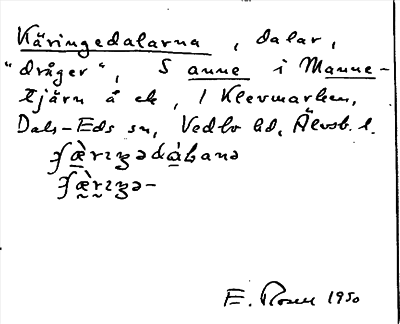 Käringedalarna, dalar,
"dråger", S anne i Manne-
tjärn å ek, 1 Klevmarken,
Dals-Eds sn, Vedbo hd, Älvsb. l.
E. Rosell 1950